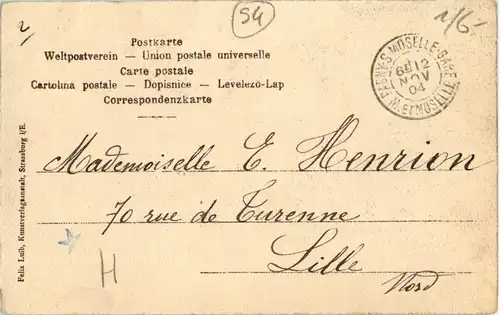 54
2/6-
Postkarte
Weltpostverein — Union postale universelle
Carte postale
Cartolina postale — Dopisnice — Levelező-Lap
Correspondenzkarte
PAGNY-S-MOSELLE-GARE
12
NOV
04
M.ET MOSELLE
Mademoiselle E. Henrion
70 rue de Turenne
Lille
Nord
H
Felix Luib, Kunstverlagsanstalt, Strassburg i/E.